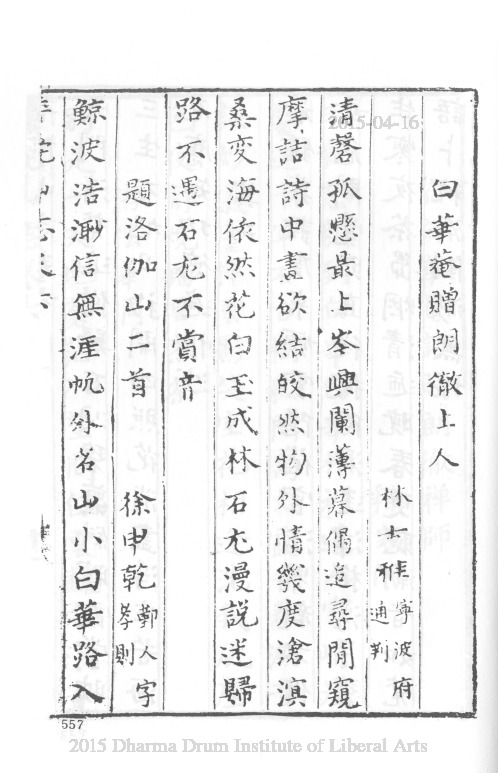 白華菴贈朗徹上人
林士雅 寧波府
通判
清磬孤懸最上岑興闌薄暮偶追尋閒窺
摩詰詩中畫欲結皎然物外情幾度滄溟
桑變海依然花白玉成林石尤漫說迷歸
路不遇石尤不賞音
題洛伽山二首 徐申乾 鄞人字
孝則
鯨波浩渺信無涯帆外名山小白華路入
2015-04-16
557
2015 Dharma Drum Institute of Liberal Arts